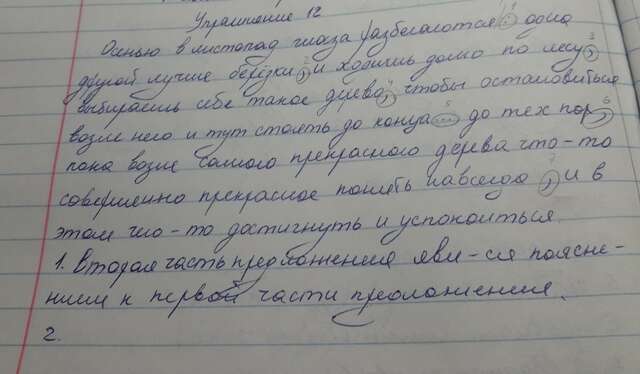 Упражнение 12
Осенью в листопад глаза разбегаются : одна
другой лучше берёзки , и ходишь долго по лесу ,
выбираешь себе такое дерево , чтобы остановиться
возле него и тут стоять до конца ... до тех пор ,
пока возле самого прекрасного дерева что-то
совершенно прекрасное понять навсегда , и в
этом что-то достигнуть и успокоиться.
1. Вторая часть предложения явл-ся поясне-
нием к первой части предложения.
2.